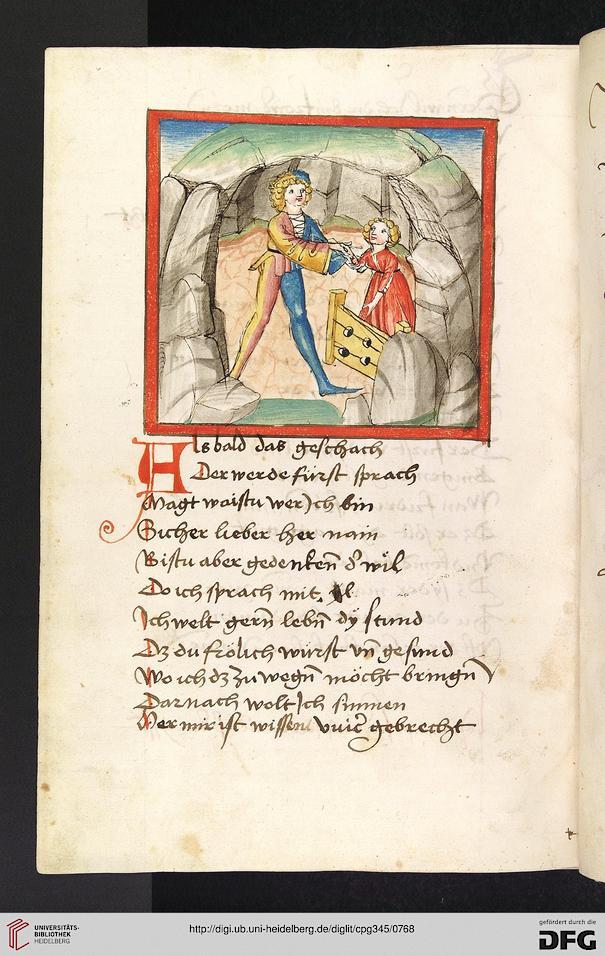 Als bald das geschach
Der werde fürst sprach
Magt waistu wer Ich bin
Sicher lieber her nain
Bistu aber gedenkeñ dˀ wil
Do ich sprach mit
Ich welt gerñ lebñ dÿ stund
Dz du frölich würst vñ gesund
Wo ich dz zu wegñ möcht bringñ
Darnach wolt Ich sinnen
Her mir ist wissen gebrecht
UNIVERSITÄTS-
BIBLIOTHEK
HEIDELBERG
http://digi.ub.uni-heidelberg.de/diglit/cpg345/0768
gefördert durch die
DFG